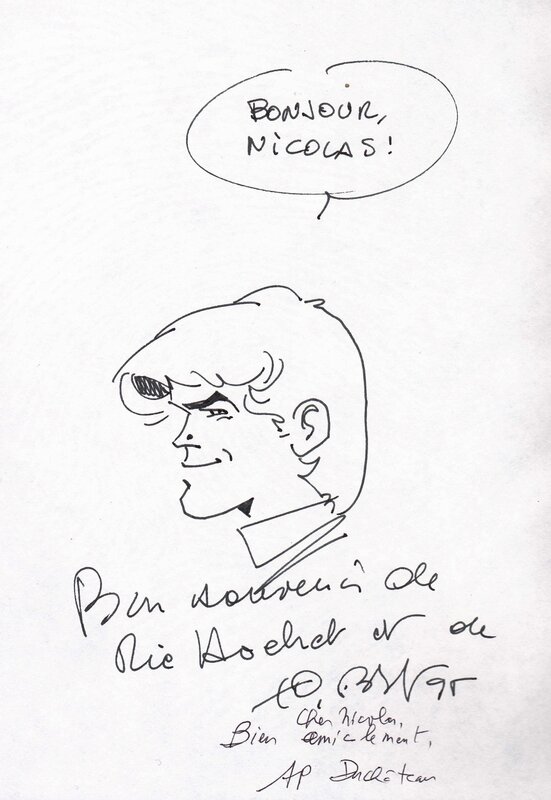 BONJOUR,
NICOLAS!
Bon souvenir de
Ric Hochet et de
95
Cher Nicolas,
Bien amicalement,
AP Duchâteau